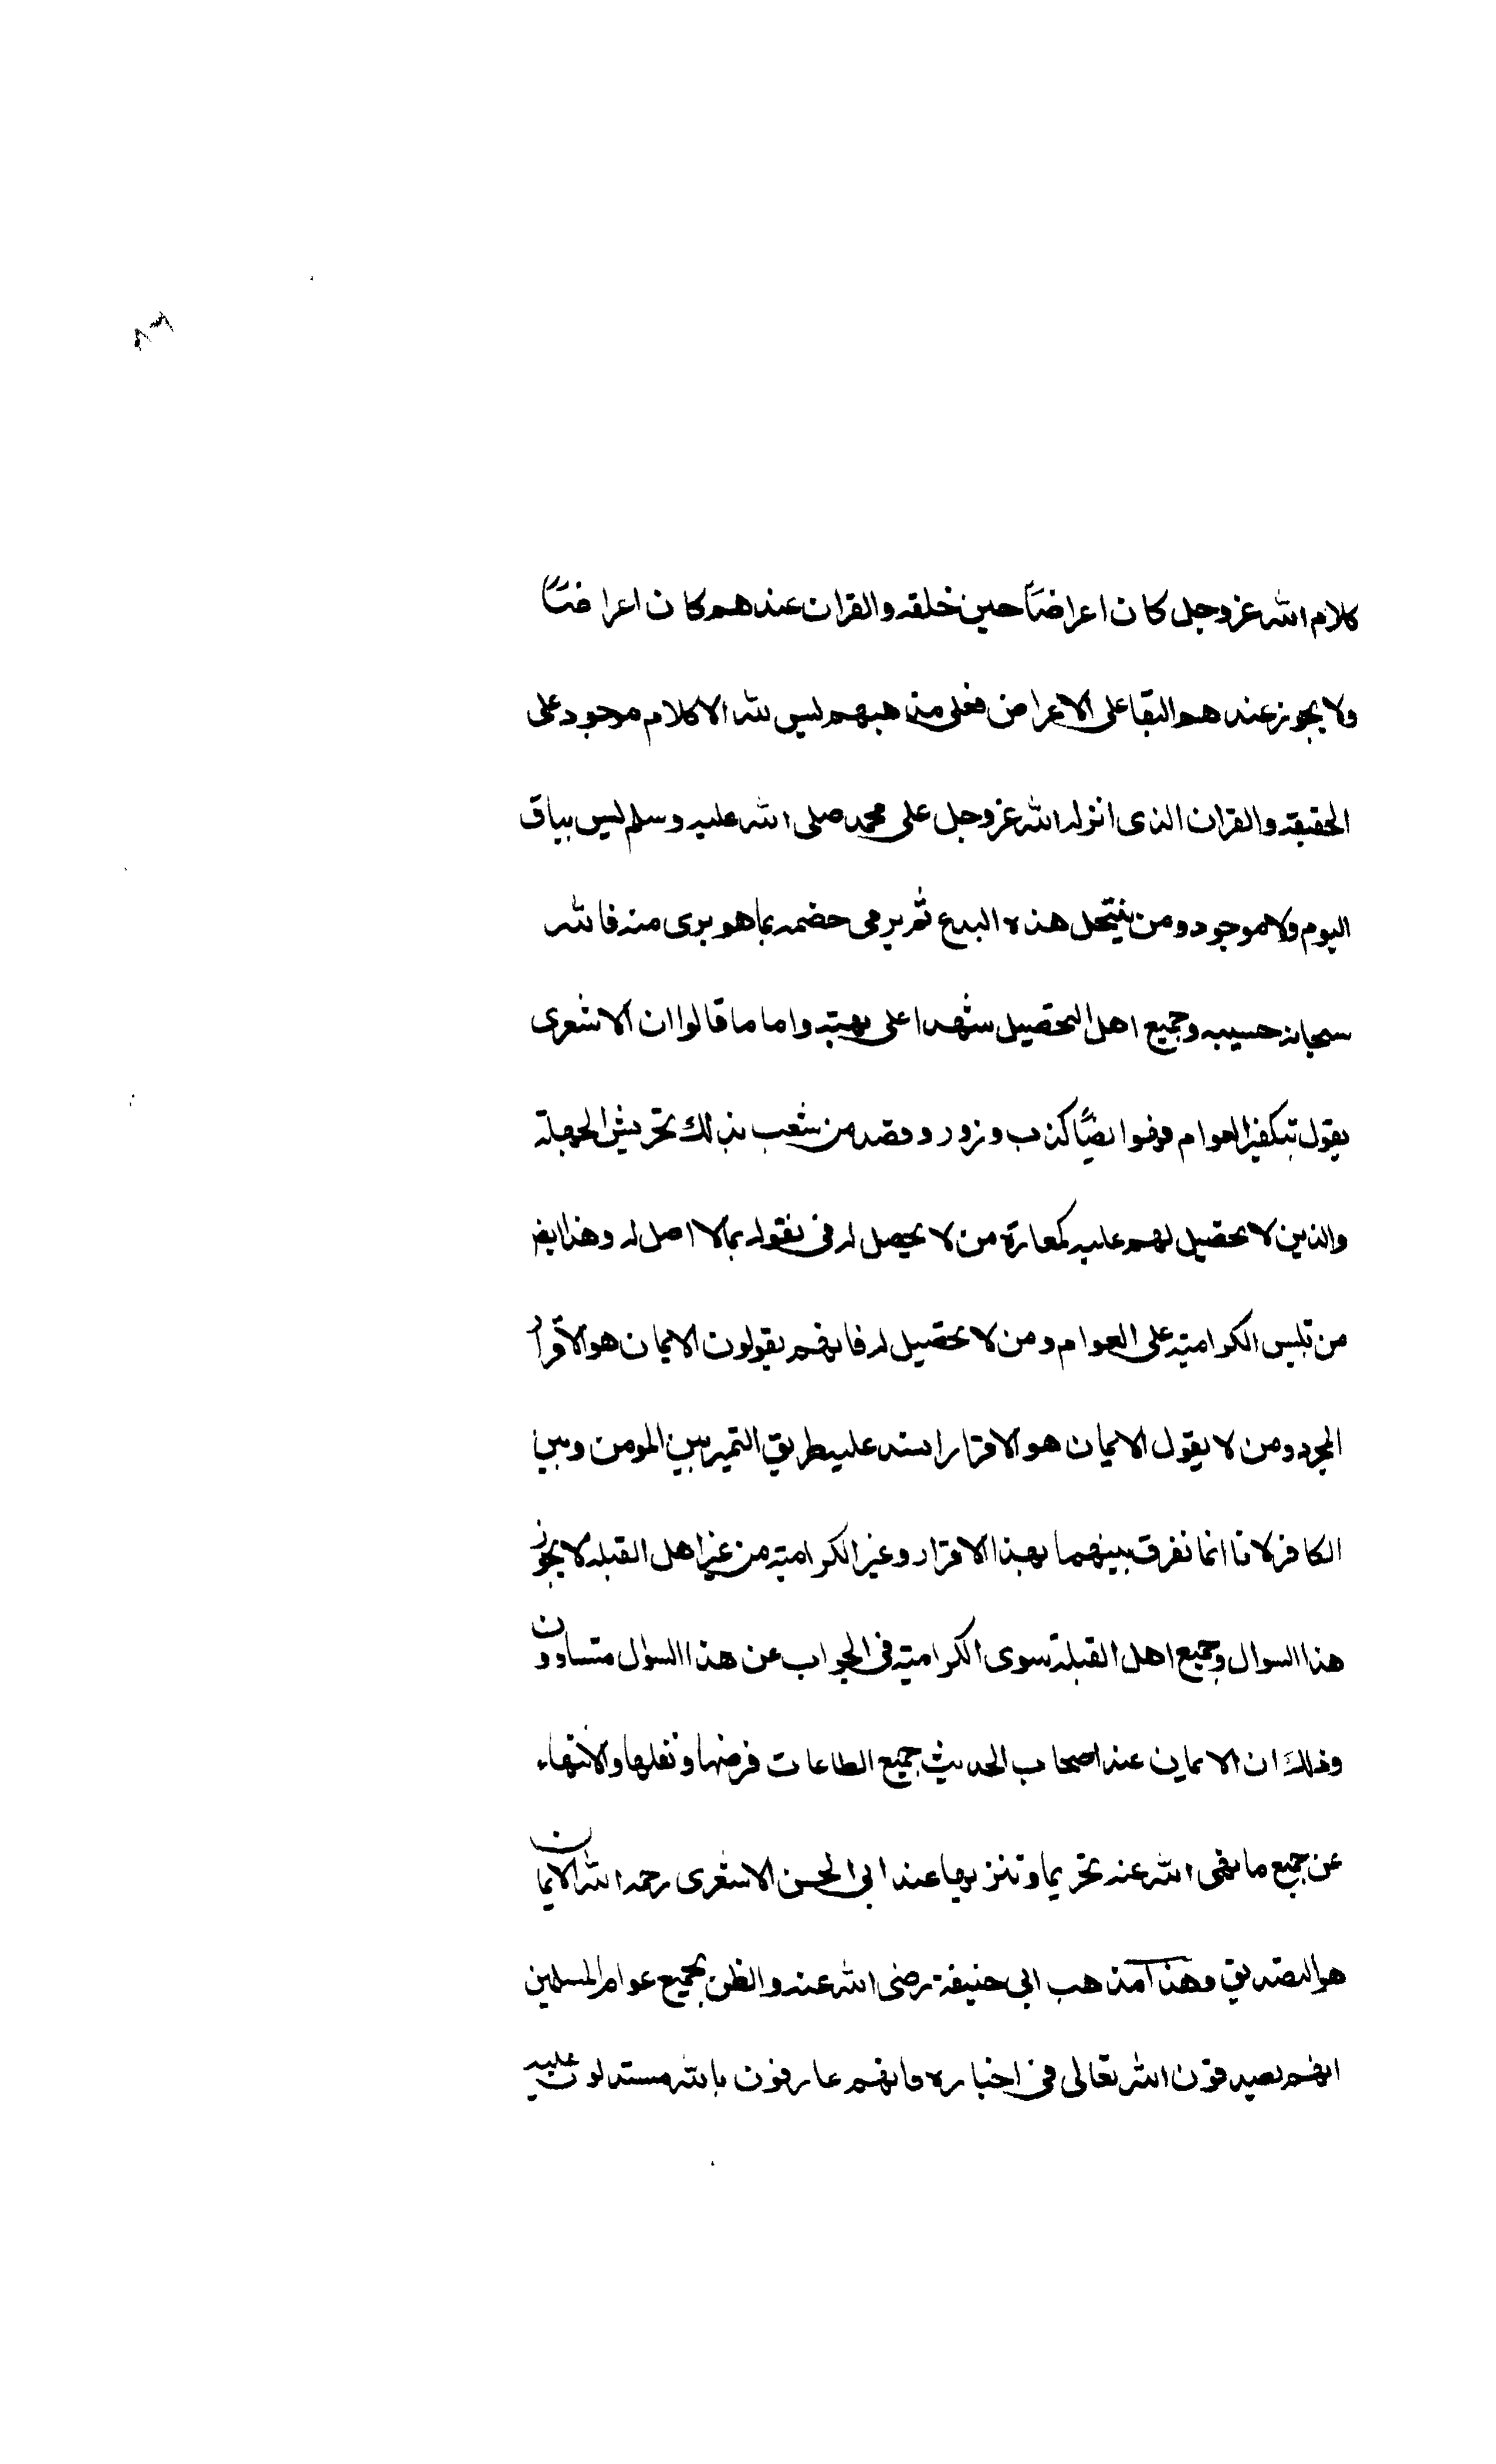 كلام الله عز وجل كان اعراضًا حين خلقه والقران عندهم كان اعراضًا
ولا يجوز عندهم البقا على الاعراض فعلى مذهبهم ليس لله الا كلام موجود على
الحقيقه والقران الذى انزله الله عز وجل على محمد صلى الله عليه وسلم ليس بباق
اليوم ولا موجود ومن ينتحل هذه البدع ثم يرمى خصمه بما هو برى منه فالله
سبحانه حسيبه وجميع اهل التحصيل شهدا على بهته واما ما قالوا ان الاشعرى
يقول بتكفير العوام فهو ايضًا كذب وزور وقصد من شعب بذلك تحريش الجهلة
والذين لا تحصيل لهم عليه كعادة من لا تحصيل له فى تقوله بما لا اصل له وهذا ايضا
من تلبيس الكرامية على العوام ومن لا تحصيل له فانهم يقولون الايمان هو الاقرار
المجرد ومن لا يقول الايمان هو الاقرار انسد عليه طريق التميز بين المومن وبين
الكافر لانا انما نفرق بينهما بهذا الاقرار وغير الكرامية من غير اهل القبله لا يجوز
هذا السوال وجميع اهل القبلة سوى الكرامية فى الجواب عن هذا السوال متساوون
وذلك ان الايمان عند اصحاب الحديث جميع الطاعات فرضها ونفلها والانتهاء
عن جميع ما نهى الله عنه تحريما وتنزيها عند ابى الحسن الاشعرى رحمه الله الايمان
هو التصديق وهذا مذهب ابى حنيفة رضى الله عنه والظن بجميع عوام المسلمين
انهم يصدقون الله تعالى فى اخباره وانهم عارفون بالله مستدلون عليه